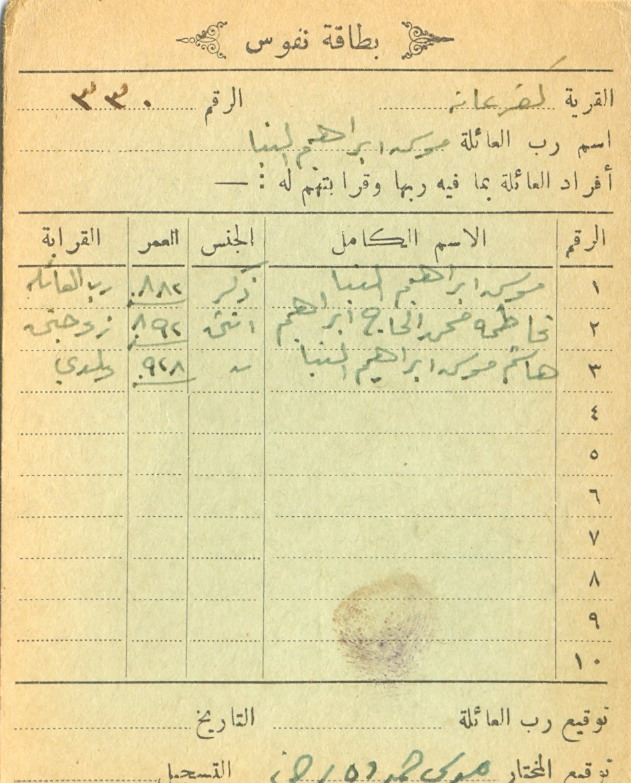 بطاقة نفوس
القرية كفرعانه الرقم ٣٣٠
اسم رب العائلة موسى ابراهيم البنا
أفراد العائلة بما فيه ربها وقرابتهم له : —
الرقم الاسم الكامل الجنس العمر القرابة
١ موسى ابراهيم البنا ذكر ٨٨٢ رب العائله
٢ فاطمه محمد الحاج ابراهيم انثى ٨٩٢ زوجتي
٣ هاشم موسى ابراهيم البنا ٩٢٨ ولدي
٤
٥
٦
٧
٨
٩
١٠
توقيع رب العائلة التاريخ
توقيع المختار موسى التسجيل